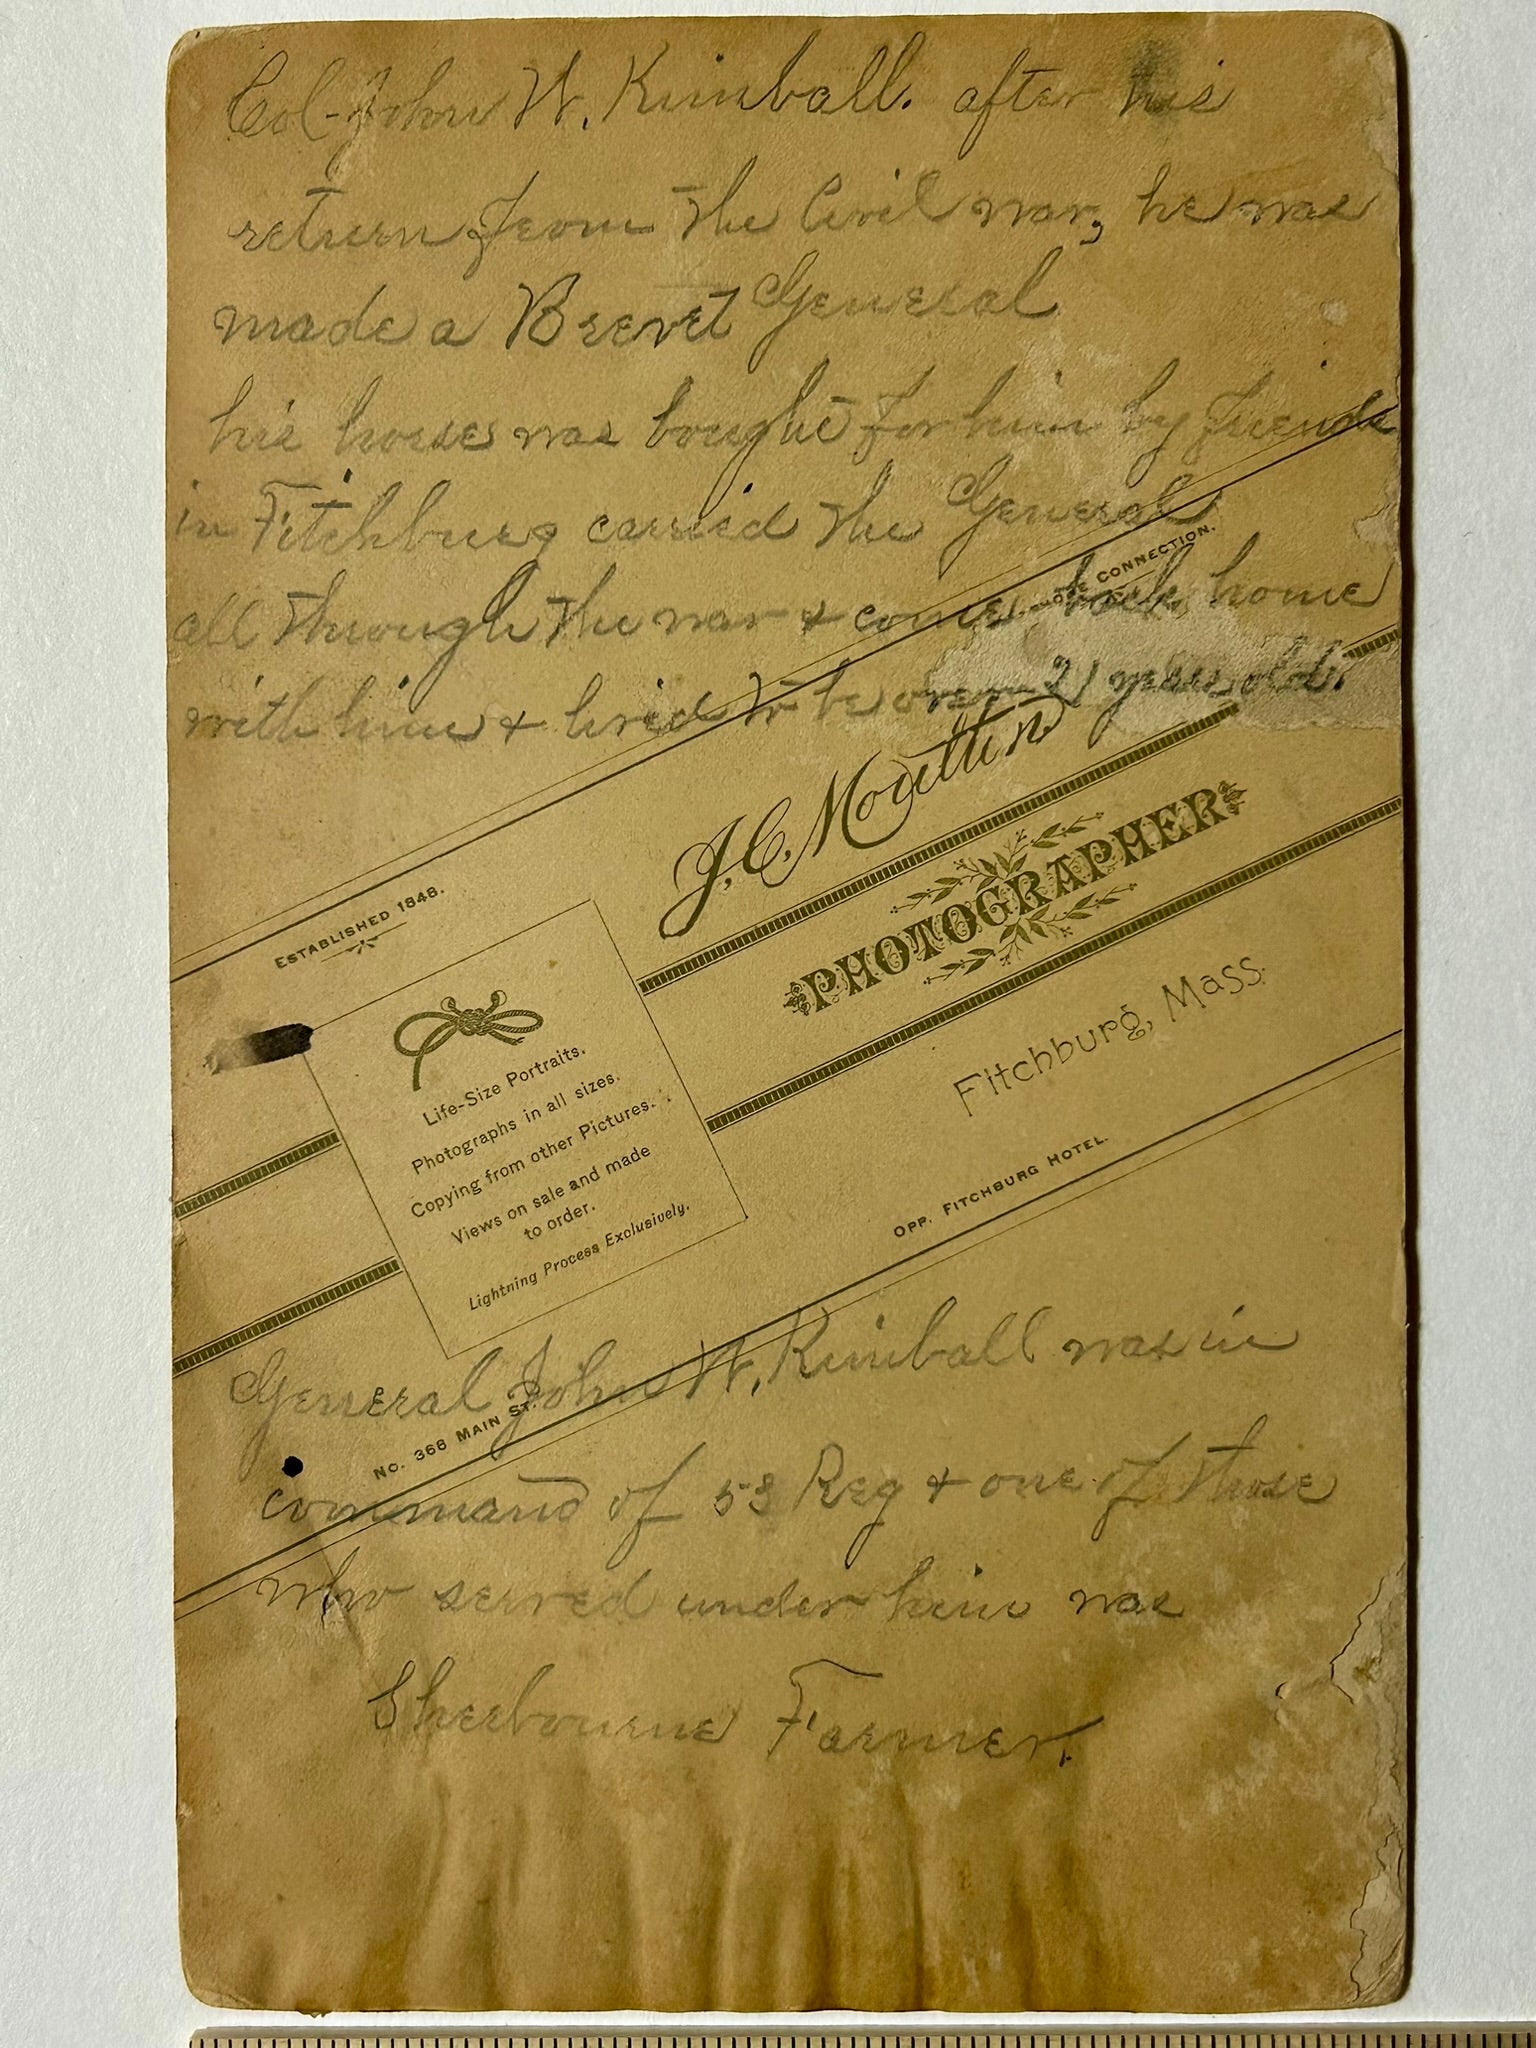 Col-John W. Kimball. after his
return from the Civil war, he was
made a Brevet General
his horse was bought for him by friends
in Fitchburg carried the General
all through the war & come back home
with him & lived to be over 21 years old.
CONNECTION.
J. C. Moulton
PHOTOGRAPHER
Fitchburg, Mass.
ESTABLISHED 1848.
Life-Size Portraits.
Photographs in all sizes.
Copying from other Pictures.
Views on sale and made
to order.
Lightning Process Exclusively.
OPP. FITCHBURG HOTEL.
No. 368 MAIN ST.
General John W. Kimball was in
command of 53 Reg & one of those
who served under him was
Sherbourne Farmer.